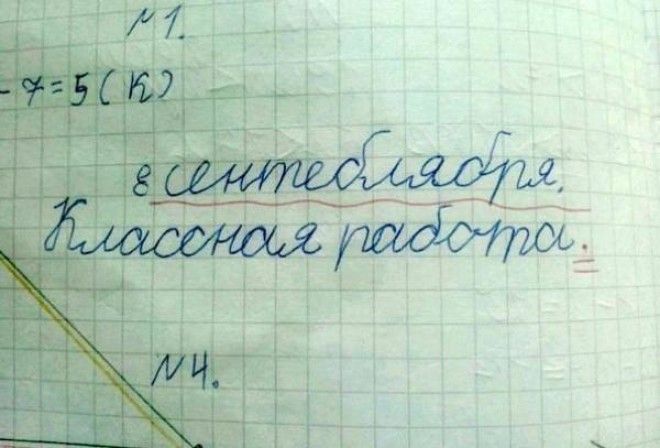 №1.
- 7=5(к)
8 сентеблября.
Классная работа.
№4.